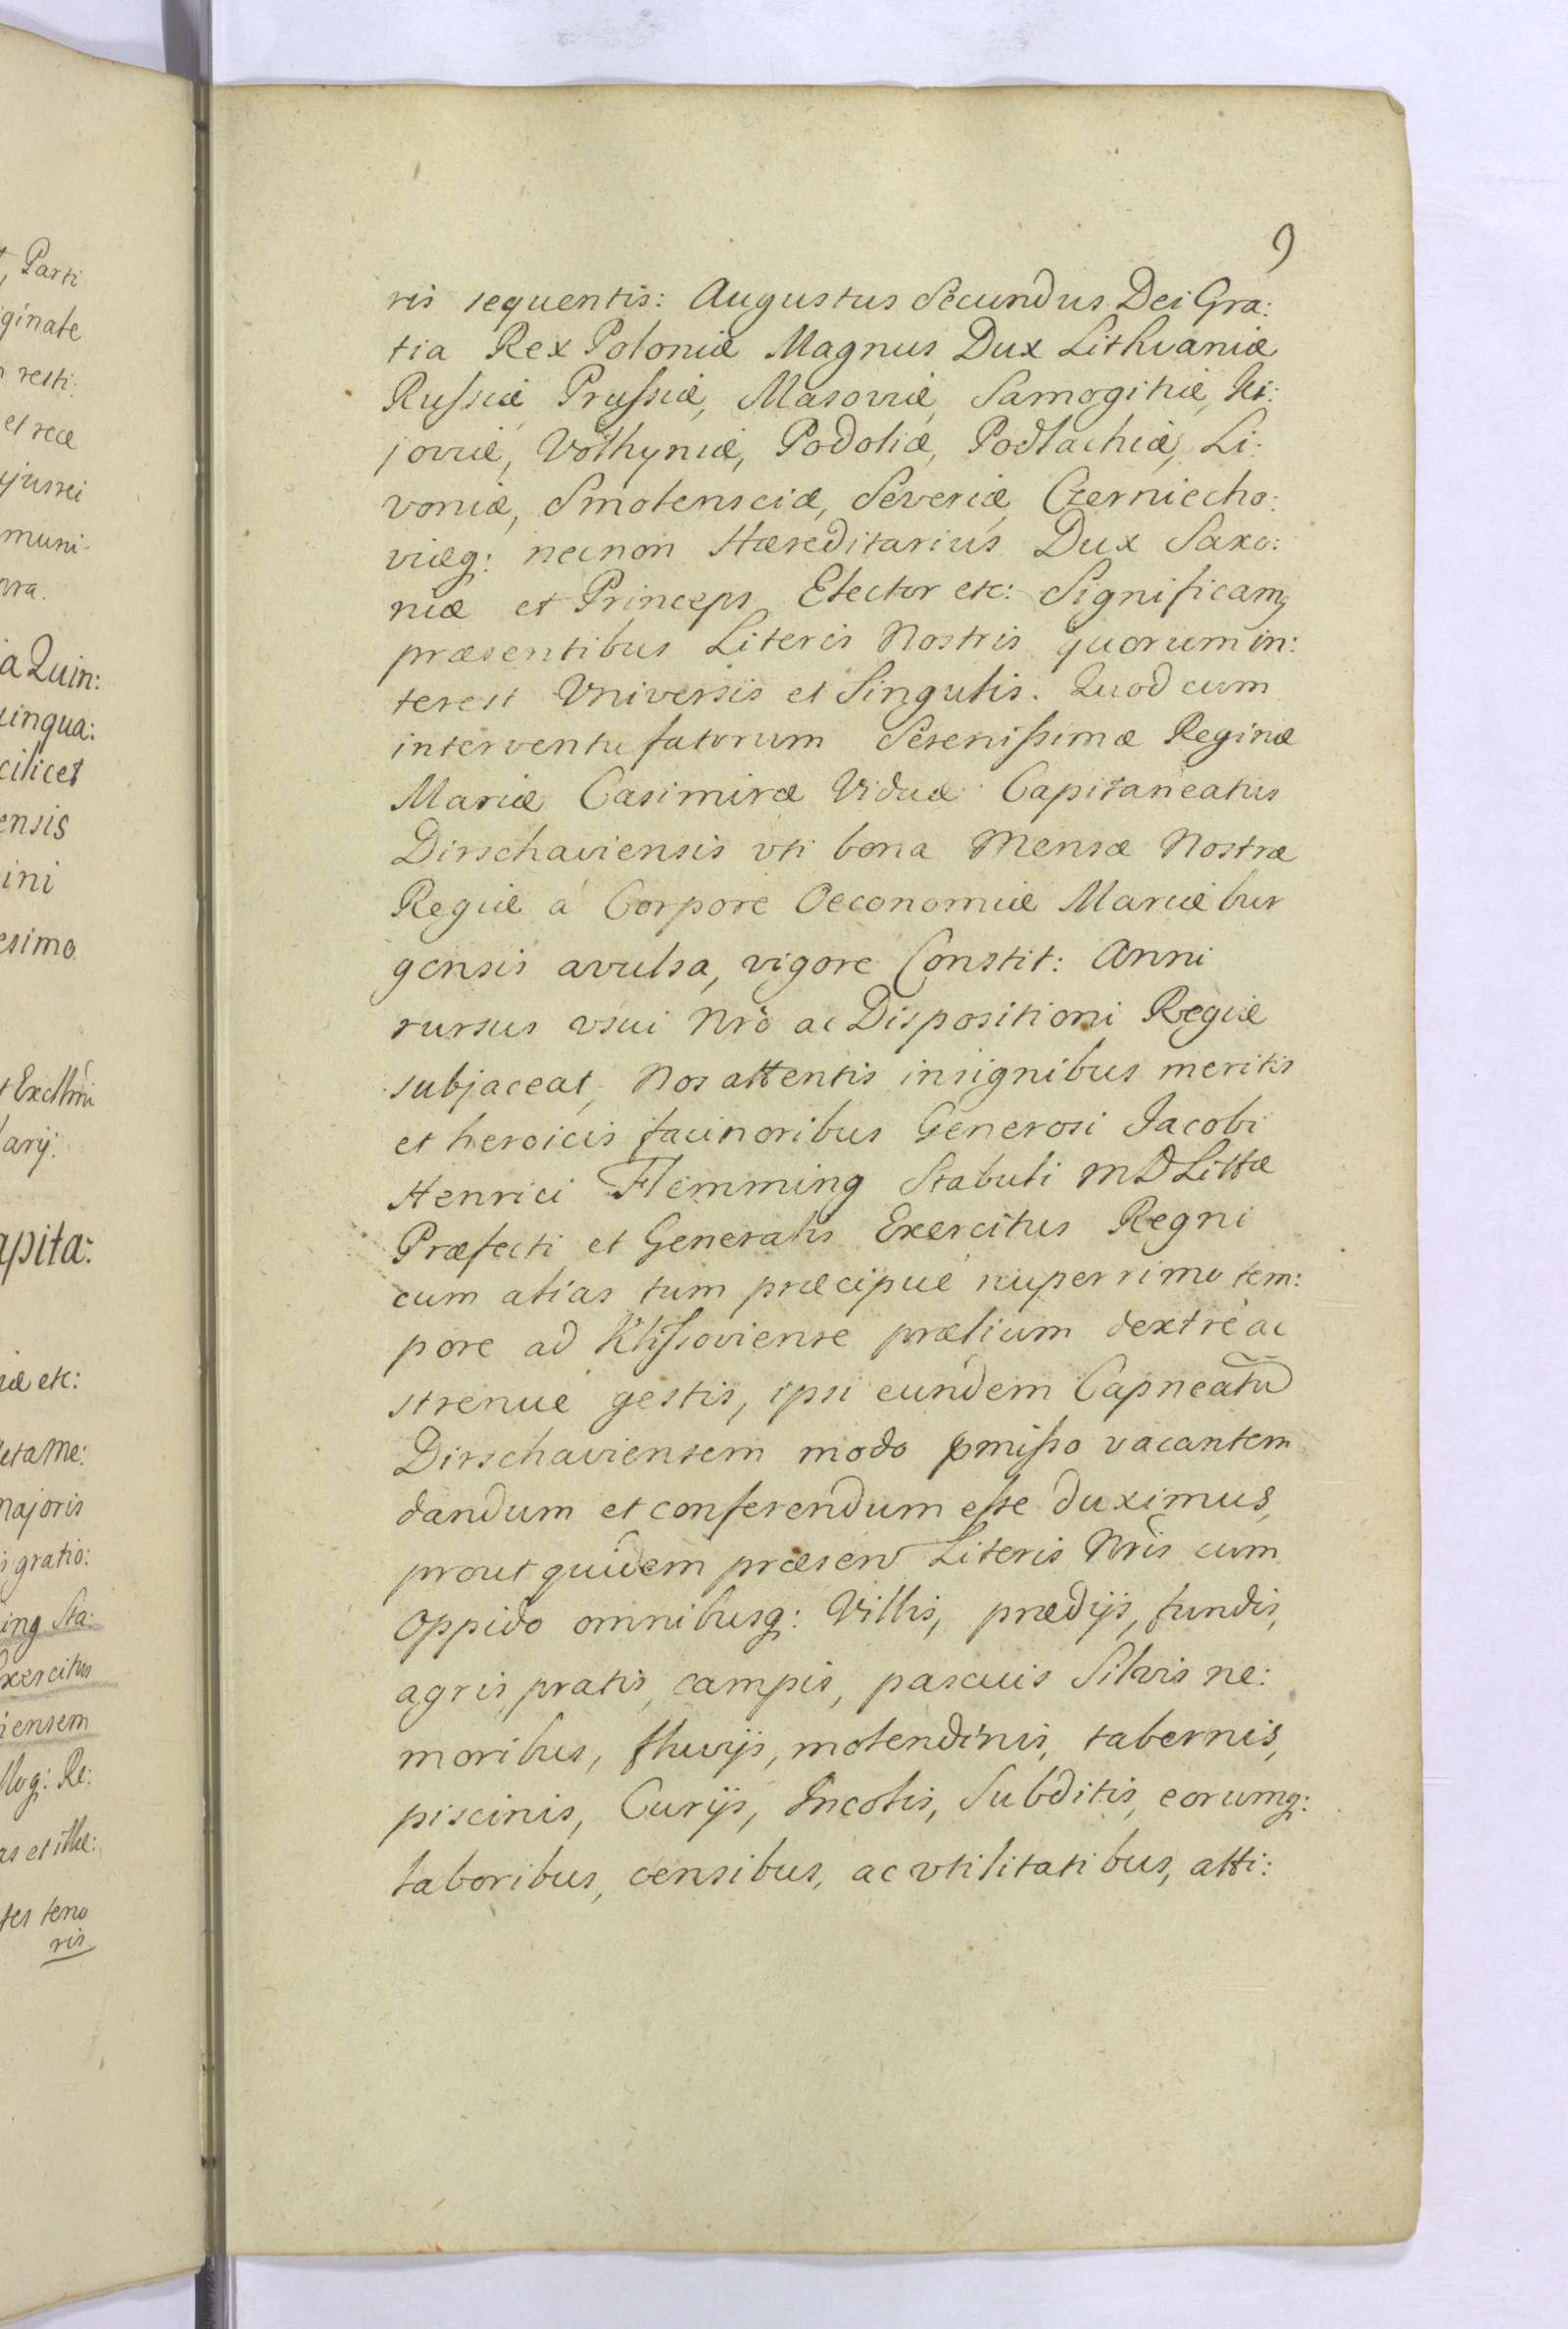 , Parti
ginate
resti:
et rece
ejus rei
muni-
a Quin:
uinqua:
cilicet
ensis
ini
esimo
t Excellmi
arij:
apita:
iæ etc:
leta Me:
majoris
gratio:
ing Sta:
Exercitus
iensem
Mog: Re:
as et ille:
tes teno
ris
9
ris sequentis: Augustus Secundus Dei Gra:
tia Rex Poloniæ Magnus Dux Lithvaniæ
Russiæ Prussiæ, Masoviæ, Samogitiæ, Ki:
joviæ, Volhyniæ, Podoliæ, Podlachiæ, Li:
voniæ, Smolensciæ, Severiæ, Czerniecho:
viæq: necnon Hæreditarius Dux Saxo:
niæ et Princeps Elector etc: Significamq
præsentibus Literis Nostris quorum in:
terest Vniversis et Singulis. Quod cum
interventu fatorum Serenissimæ Reginæ
Mariæ Casimiræ Viduæ Capitaneatus
Dirschaviensis vti bona Mensæ Nostræ
Regiæ á Corpore Oeconomiæ Mariæbur
gensis avulsa, vigore Constit: Anni
rursus vsui Nro ac Dispositioni Regiæ
subjaceat, Nos attentis insignibus meritis
et heroicis facinoribus Generosi Jacobi
Henrici Flemming Stabuli M D Littæ
Præfecti et Generalis Exercitus Regni
cum alias tum præcipue nuperrimo tem:
pore ad Klissoviense prælium dextré ac
strenué gestis, ipsi eundem Capneatũ
Dirschaviensem modo pmisso vacantem
dandum et conferendum esse duximus,
prout quidem præsen Literis Nris cum
oppido omnibusq: Villis, prædijs, fundis,
agris, pratis, campis, pascuis Silvis ne:
moribus, fluvijs, molendinis, tabernis,
piscinis, Curijs, Incolis, Subditis, eorumq:
laboribus, censibus, ac vtilitatibus, atti: